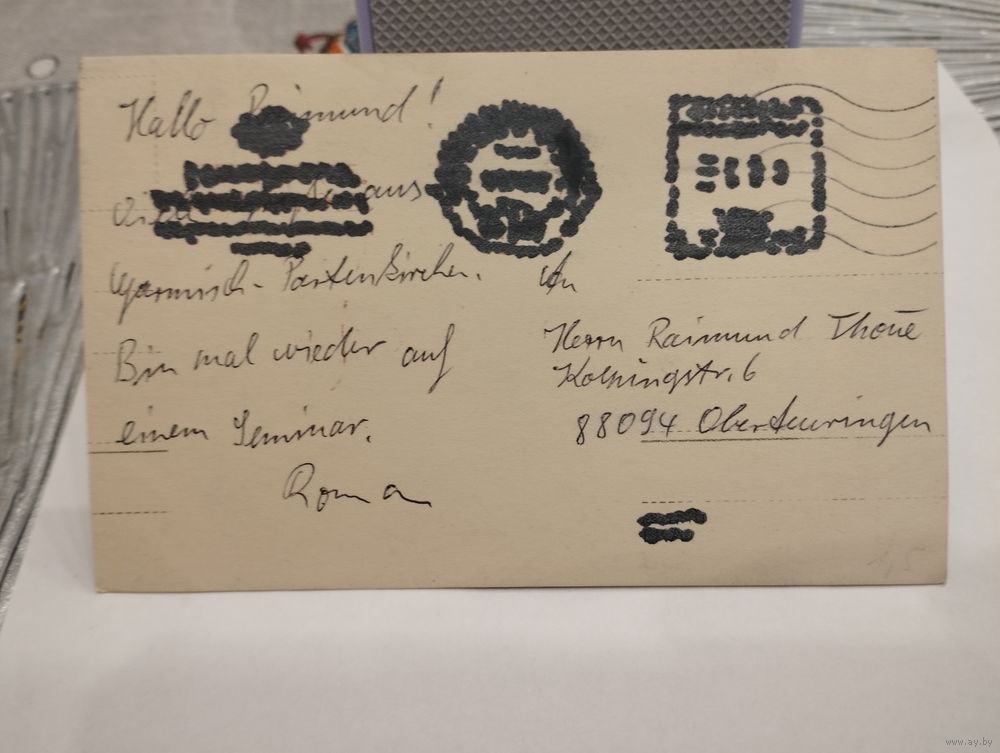 Hallo Raimund!
aus
Garmisch-Partenkirchen.
Bin mal wieder auf
einem Seminar.
Roman
An
Herrn Raimund Thoue
Kolpingstr. 6
88094 Oberteuringen
1,5
www.ay.by